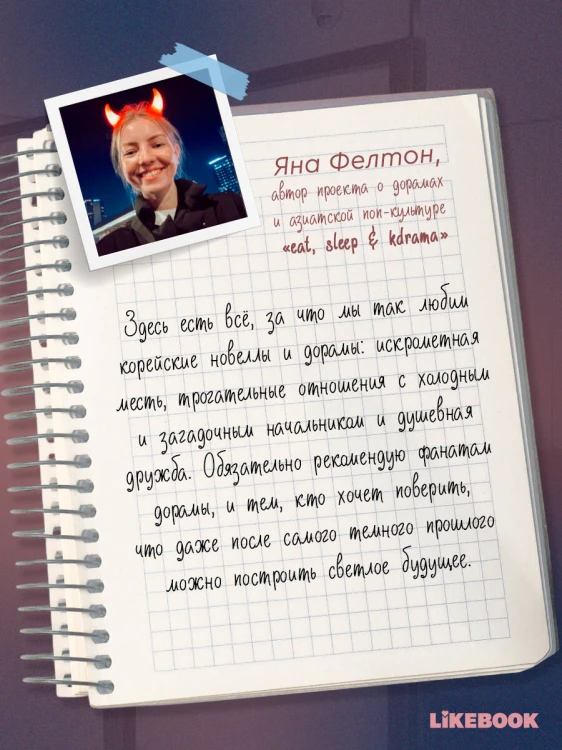 Яна Фелтон,
автор проекта о дорамах
и азиатской поп-культуре
«eat, sleep & kdrama»
Здесь есть всё, за что мы так любим
корейские новеллы и дорамы: искрометная
месть, трогательные отношения с холодным
и загадочным начальником и душевная
дружба. Обязательно рекомендую фанатам
дорамы, и тем, кто хочет поверить,
что даже после самого темного прошлого
можно построить светлое будущее.
LIKEBOOK